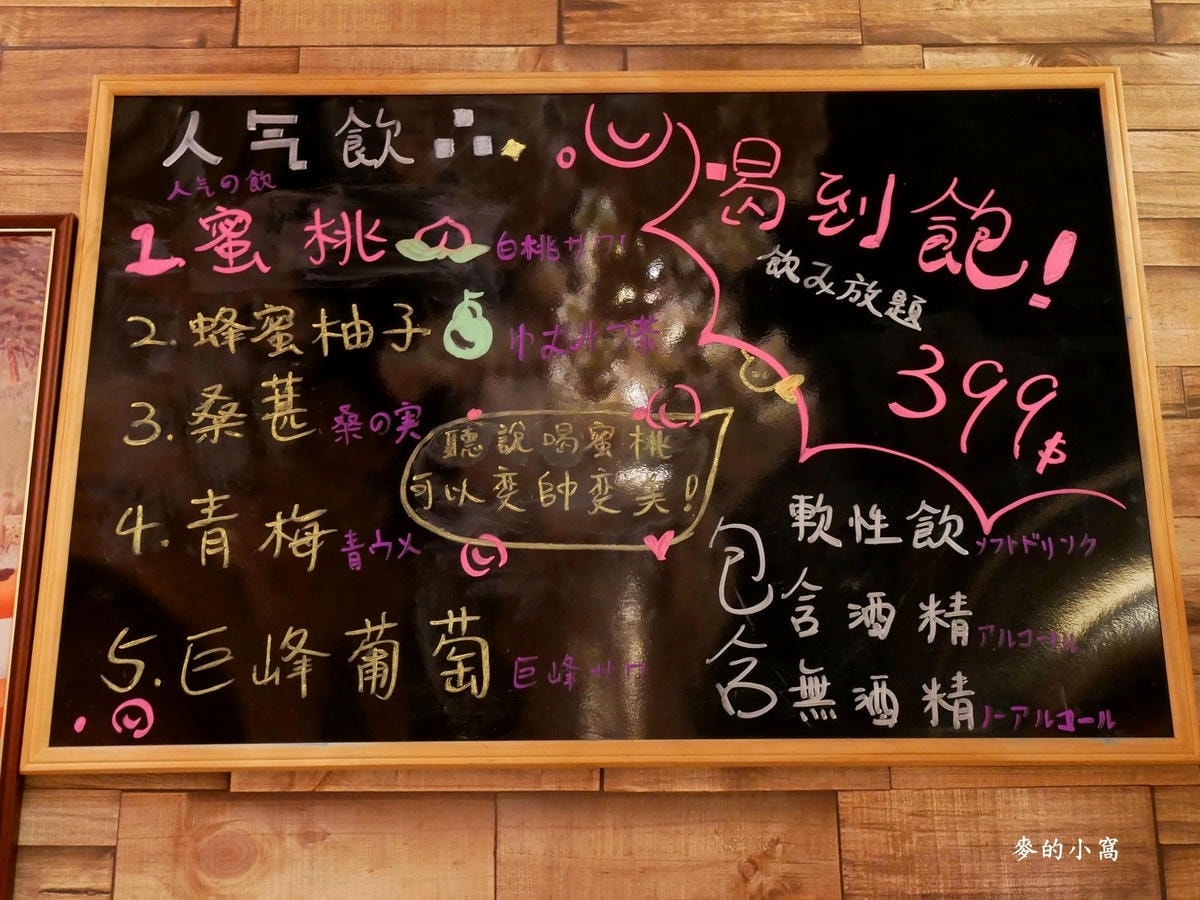 人气飲
人气の飲
1. 蜜桃 白桃サワー
2. 蜂蜜柚子
3. 桑葚 桑の実
4. 青梅 青ウメ
5. 巨峰葡萄 巨峰サワ
聽說喝蜜桃
可以变帥变美!
喝到飽!
飲み放題
399$
包含
軟性飲 ソフトドリンク
含酒精 アルコール
無酒精 ノーアルコール
麥的小窩